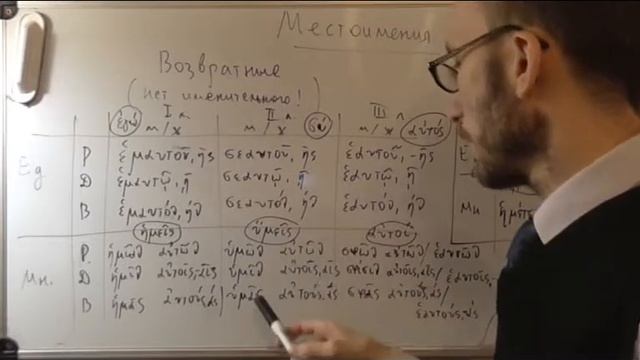 Местоимения
Возвратные
(нет именительного!)
I л II л III л
м/ж м/ж
ἐγώ σύ αὐτός
Ед
Р ἐμαυτοῦ, ῆς σεαυτοῦ, ῆς ἑαυτοῦ, -ῆς
D ἐμαυτῷ, ῇ σεαυτῷ, ῇ ἑαυτῷ, ῇ
В ἐμαυτόν, ήν σεαυτόν, ήν ἑαυτόν, ήν
ἡμεῖς ὑμεῖς αὐτοῦ
Мн.
Р. ἡμῶν αὐτῶν ὑμῶν αὐτῶν σφῶν αὐτῶν/ἑαυτῶν
D ἡμῖν αὐτοῖς, -αῖς ὑμῖν αὐτοῖς, αῖς σφίσιν αὐτοῖς, αῖς/ἑαυτοῖς, -
В ἡμᾶς αὐτούς, άς ὑμᾶς αὐτούς, άς σφᾶς αὐτούς, άς/
ἑαυτούς, άς
Мн